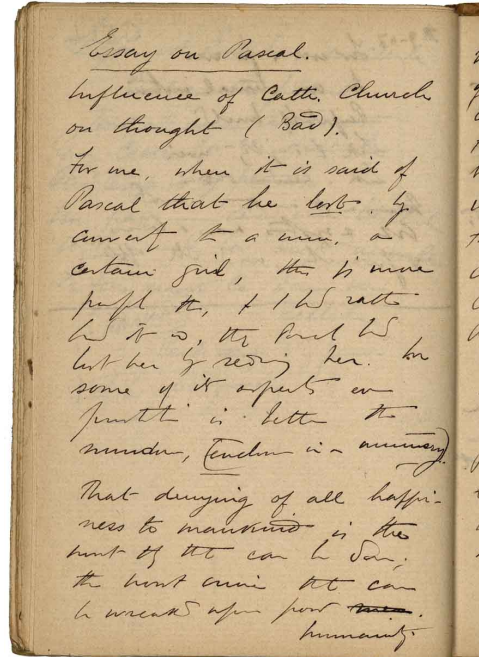 Essay on Pascal.
Influence of Cath. Church
on thought (Bad).
For me, when it is said of
Pascal that he lost, by
convert to a nun, a
certain girl, this is more
the, & I had rather
had it so, that Pascal had
lost her by seducing her. In
some of its aspects even
is better than
murder, (seclusion in a nunnery).
That denying of all happi-
ness to mankind is the
worst thg tht can be done;
the worst crime tht can
be wreaked upon poor
humanity.